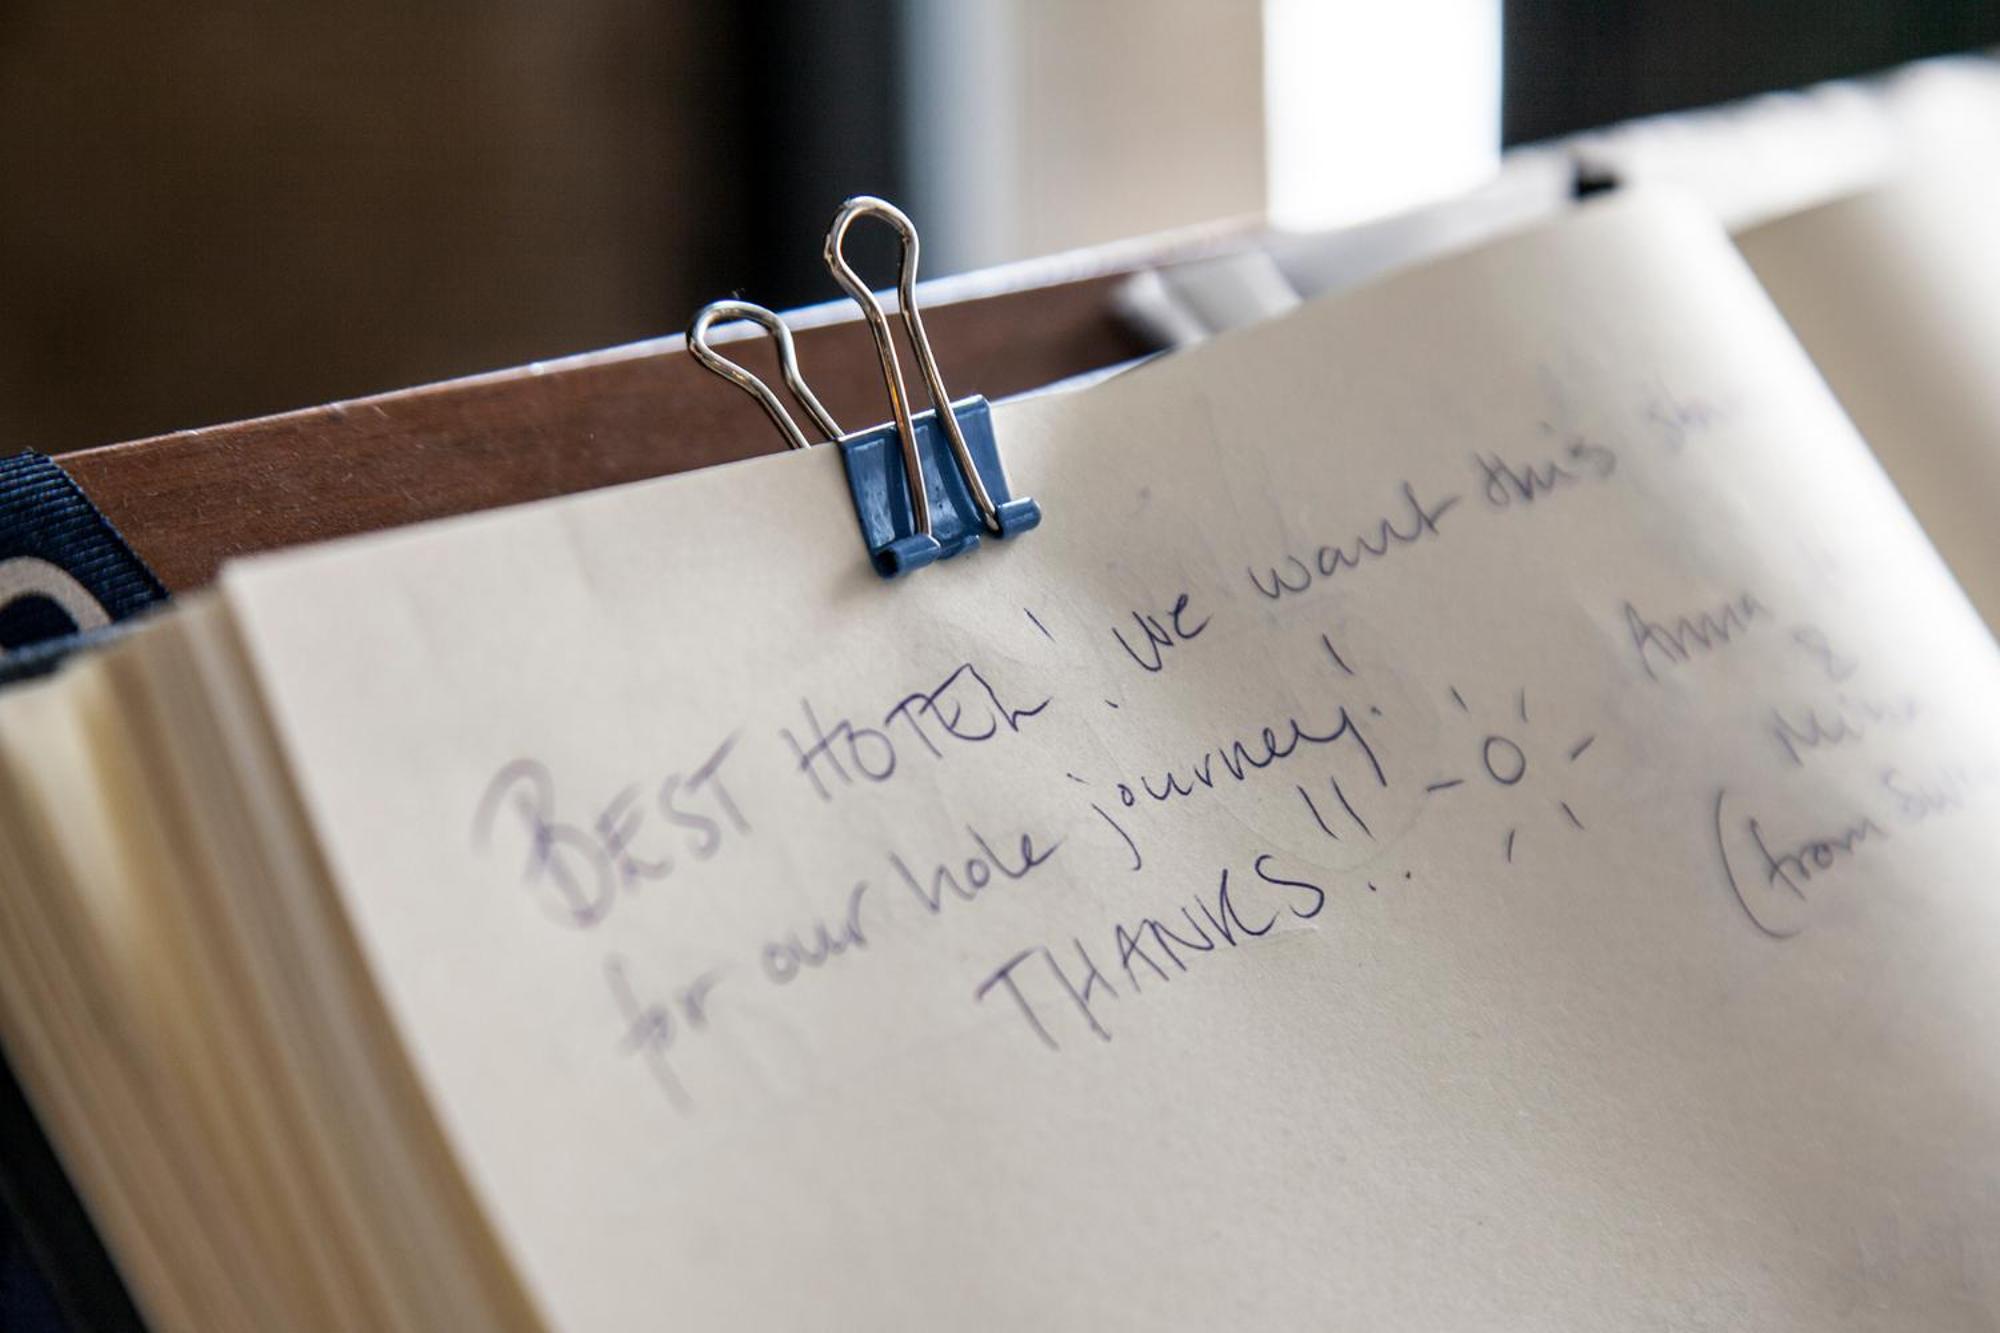 BEST HOTEL! We want this
for our hole journey!
THANKS..
Anna
&
(from